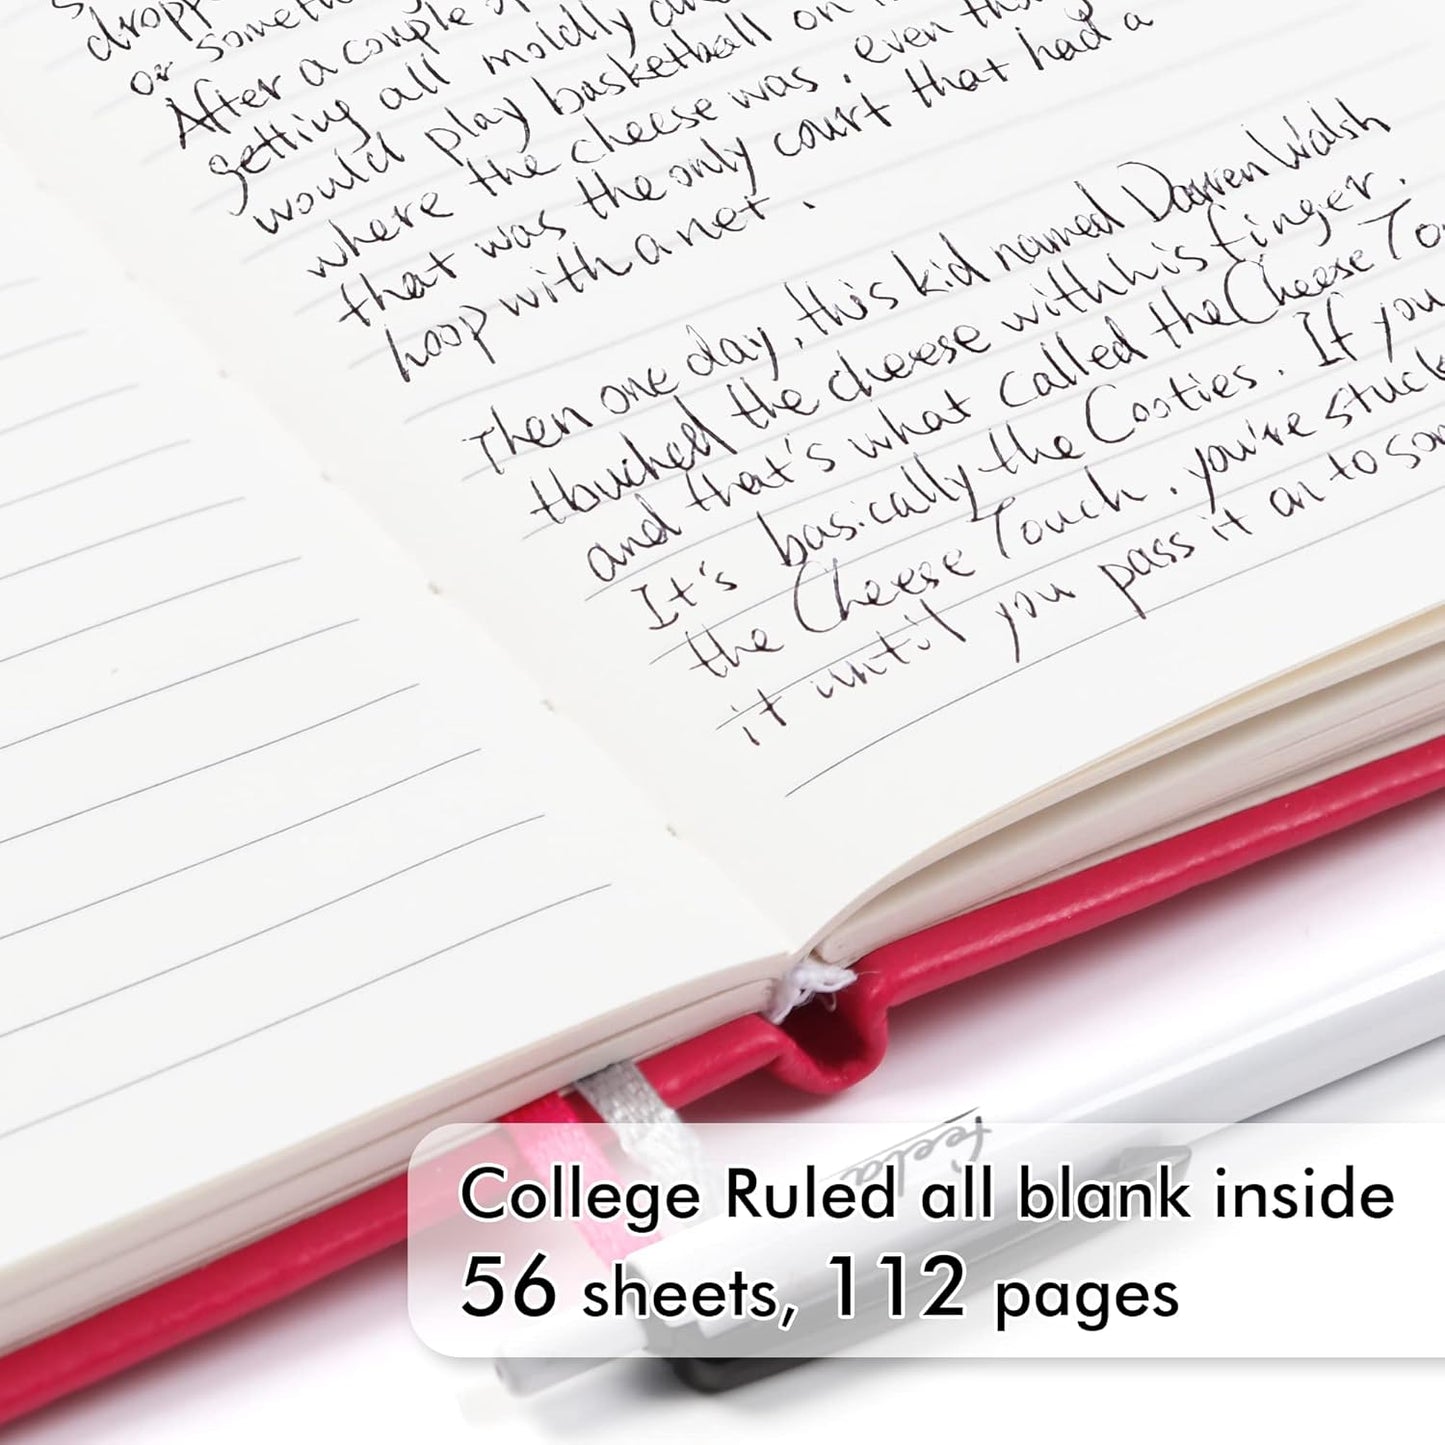 dropp
or someth
After a couple o
getting all moldly an
would play basketball on
where the cheese was, even tho
that was the only court that had a
hoop with a net.
Then one day, this kid named Darren Walsh
touched the cheese with his finger.
and that's what called the Cheese To
It's basically the Cooties. If you
the Cheese Touch. you're stuck
it until you pass it on to som
feela
College Ruled all blank inside
56 sheets, 112 pages